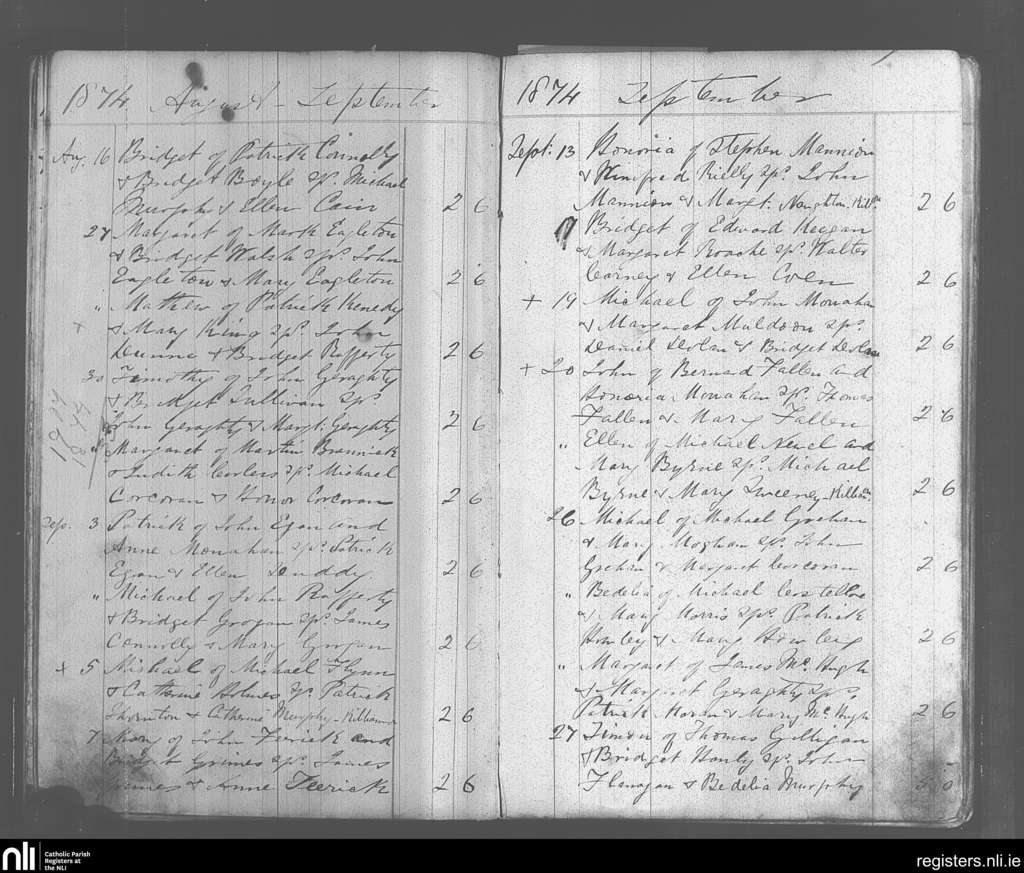 1874 August - September
Aug. 16 Bridget of Patrick Connolly
& Bridget Boyle Sps. Michael
Murphy & Ellen Cain 2 6
27 Margaret of Mark Eagleton
& Bridget Walsh Sps. John
Eagleton & Mary Eagleton 2 6
" Mathew of Patrick Kenedy
+ & Mary King Sps. John
Dunne & Bridget Rafferty 2 6
30 Timothy of John Geraghty
& Bridget Sullivan Sps.
John Geraghty & Margt. Geraghty 2 6
" Margaret of Martin Brannick
& Judith Corless Sps. Michael
Corcoran & Honor Corcoran 2 6
Sep. 3 Patrick of John Egan and
Anne Monahan Sps. Patrick
Egan & Ellen Duddy. 2 6
" Michael of John Rafferty
& Bridget Grogan Sps. James
Connolly & Mary Grogan 2 6
+ 5 Michael of Michael Flynn
& Catherine Holmes Sps. Patrick
Thornton & Catherine Murphy - 2 6
7 Mary of John Feerick and
Bridget Grimes Sps. James
Grimes & Anne Feerick 2 6
1914
1874
1874 September
Sept: 13 Honoria of Stephen Mannion
& Winifred Rielly Sps. John
Mannion & Margt. Naughton 2 6
Bridget of Edward Keegan
& Margaret Roache Sps. Walter
Carney & Ellen Coen 2 6
+ 19 Michael of John Monahan
& Margaret Muldoon Sps.
Daniel Dolan & Bridget Dolan 2 6
+ 20 John of Bernard Fallen and
Honoria Monahan Sps. Thomas
Fallen & Mary Fallen 2 6
" Ellen of Michael and
Mary Byrne Sps. Michael
Byrne & Mary Sweeney - 2 6
26 Michael of Michael Grehan
& Mary Sps. John
Grehan & Margaret Corcoran 2 6
" Bedelia of Michael Costelloe
& Mary Morris Sps. Patrick
Howley & Mary Howley 2 6
" Margaret of James Mc. Hugh
& Margaret Geraghty Sps.
Patrick Moran & Mary Mc. Hugh 2 6
27 of Thomas Gilligan
& Bridget Hanly Sps. John
Flanagan & Bedelia Murphy 5 0
nli Catholic Parish
Registers at
the NLI
registers.nli.ie